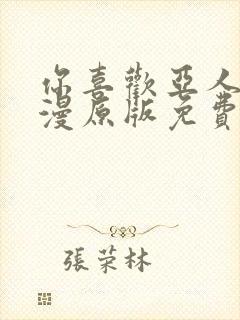 你喜歡亞人
漫原版免費
張荣林